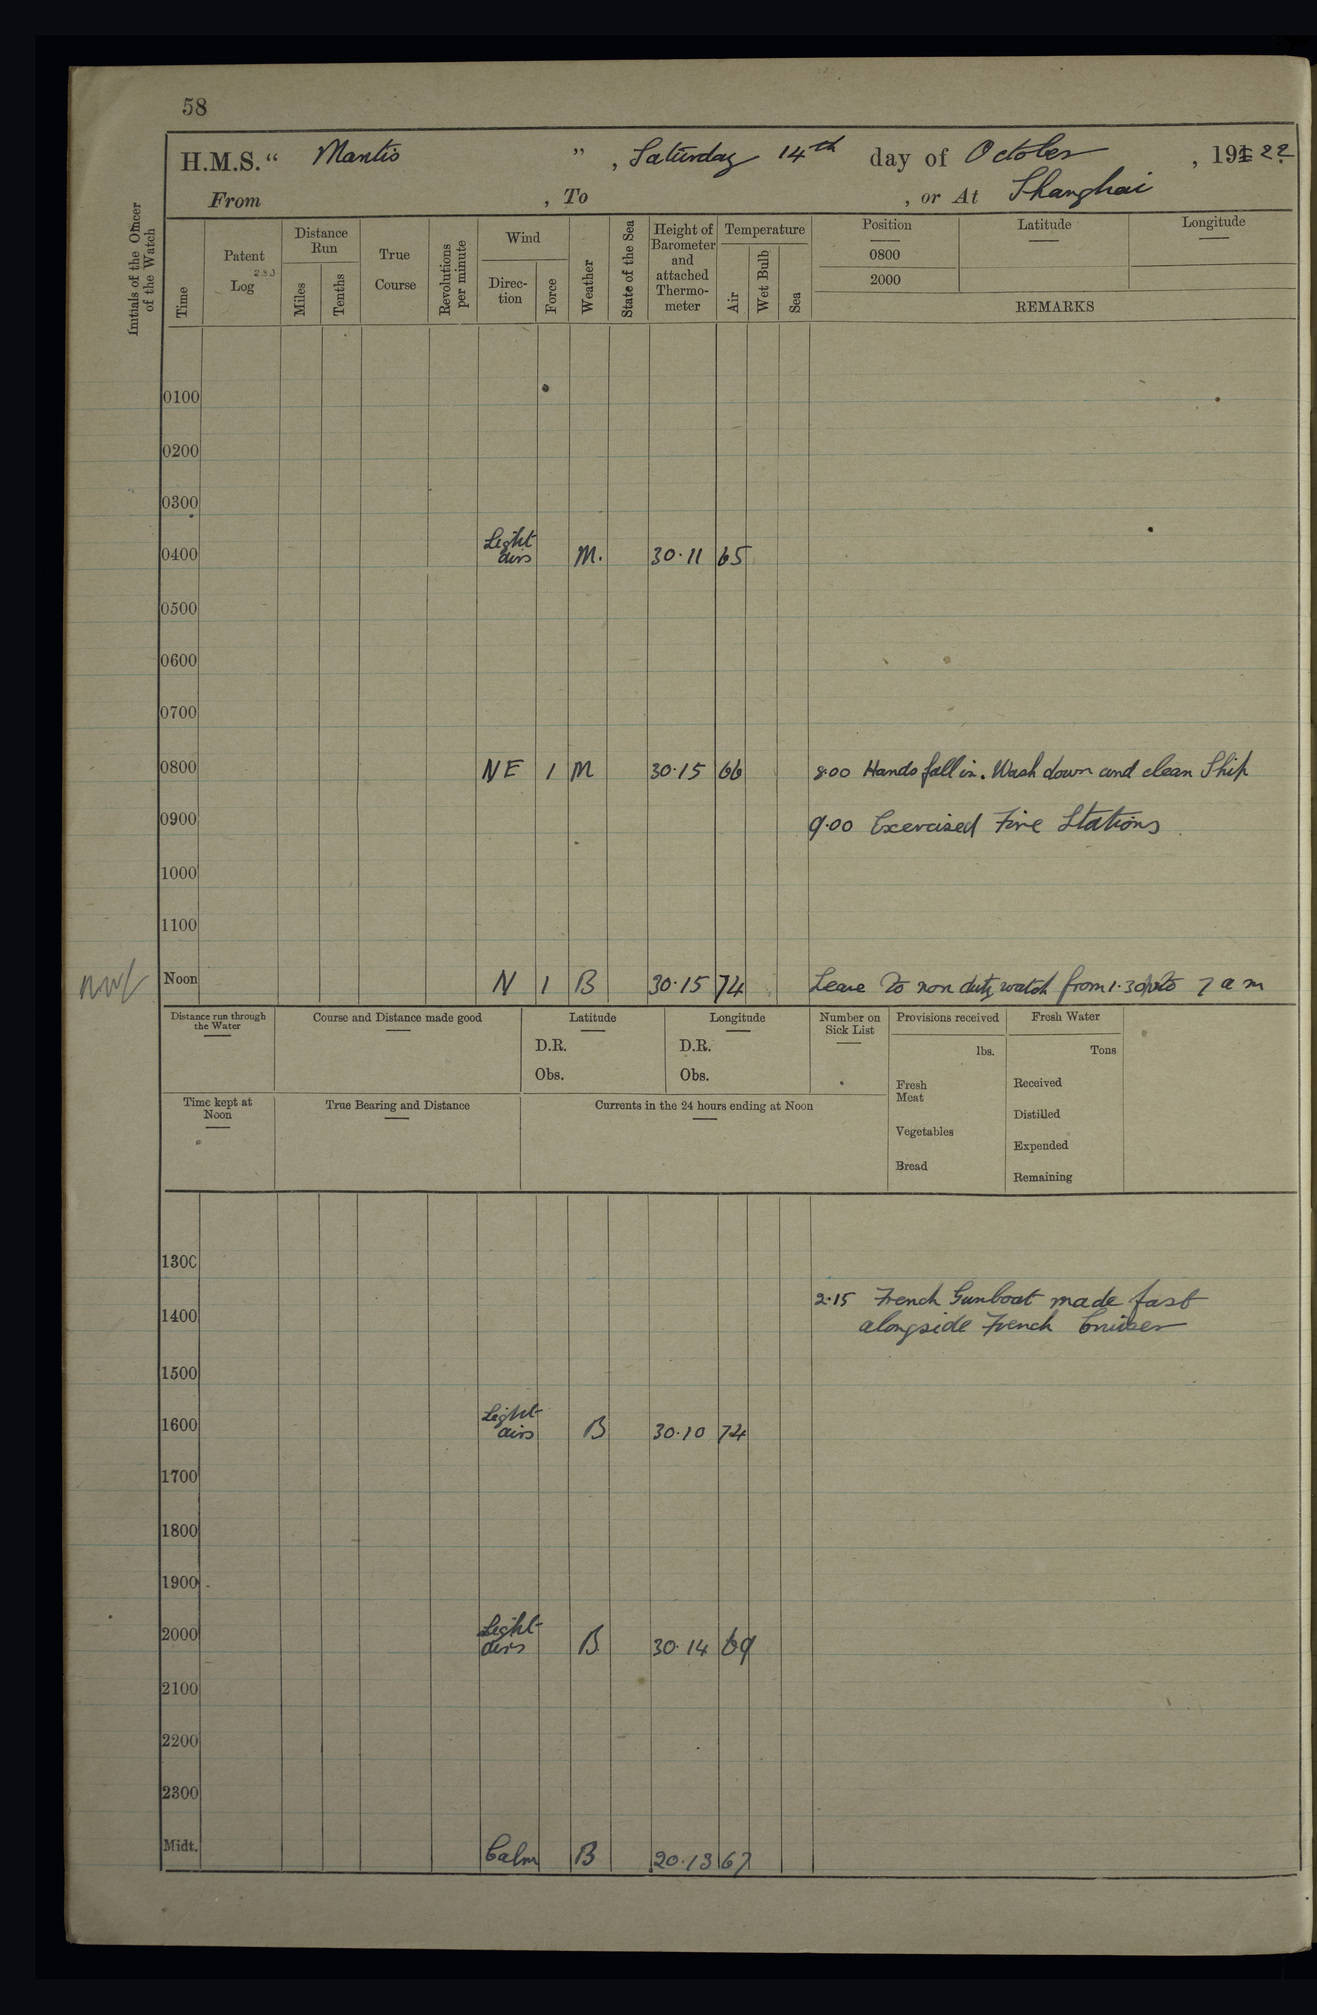 58
H.M.S. “ Mantis ” , Saturday 14th day of October , 191 22
From , To , or At Shanghai
Initials of the Officer of the Watch
Time
Patent Log
Distance Run
Miles
Tenths
True Course
Revolutions per minute
Wind
Direc-tion
Force
Weather
State of the Sea
Height of Barometer and attached Thermo-meter
Temperature
Air
Wet Bulb
Sea
Position
0800
2000
Latitude
Longitude
REMARKS
0100
0200
0300
0400 Light airs M. 30.11 65
0500
0600
0700
0800 NE 1 M 30.15 66 8.00 Hands fall in. Wash down and clean Ship
0900 9.00 Exercised Fire Stations
1000
1100
Noon N 1 B 30.15 74 Leave to non duty watch from 1.30 to 7 a m
Distance run through the Water
Course and Distance made good
Latitude
D.R.
Obs.
Longitude
D.R.
Obs.
Number on Sick List
Provisions received
lbs.
Fresh Meat
Vegetables
Bread
Fresh Water
Tons
Received
Distilled
Expended
Remaining
Time kept at Noon
True Bearing and Distance
Currents in the 24 hours ending at Noon
1300
2.15 French Gunboat made fast
1400 alongside French Cruiser
1500
1600 Light airs B 30.10 74
1700
1800
1900
2000 Light airs B 30.14 69
2100
2200
2300
Midt. Calm B 30.13 67